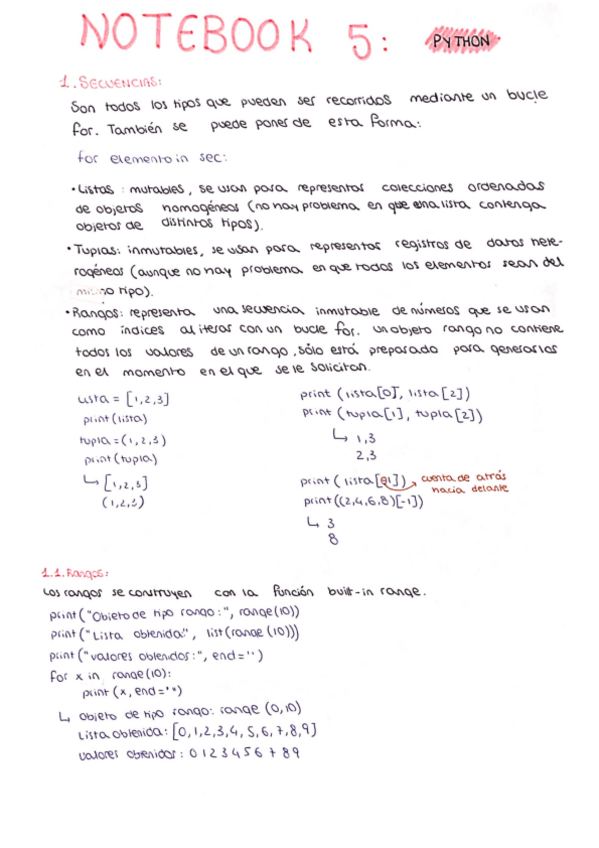 NOTEBOOK 5: PYTHON
1. SECUENCIAS:
Son todos los tipos que pueden ser recorridos mediante un bucle
for. También se puede poner de esta forma:
for elemento in sec:
• Listas: mutables, se usan para representar colecciones ordenadas
de objetos homogéneos (no hay problema en que una lista contenga
objetos de distintos tipos).
• Tuplas: inmutables, se usan para representar registros de datos hete-
rogéneos (aunque no hay problema en que todos los elementos sean del
mismo tipo).
• Rangos: representa una secuencia inmutable de números que se usan
como índices al iterar con un bucle for. un objeto rango no contiene
todos los valores de un rango, sólo está preparado para generarlos
en el momento en el que se le solicitan.
lista = [1,2,3]
print(lista)
tupla = (1,2,3)
print(tupla)
↳ [1,2,3]
(1,2,3)
print (lista[0], lista[2])
print (tupla[1], tupla[2])
↳ 1,3
2,3
print (lista[-1]) → cuenta de atrás
hacia delante
print((2,4,6,8)[-1])
↳ 3
8
1.1. Rangos:
Los rangos se construyen con la función built-in range.
print("Objeto de tipo rango:", range(10))
print("Lista obtenida:", list(range(10)))
print("valores obtenidos:", end='')
for x in range(10):
print (x, end=" ")
↳ Objeto de tipo rango: range (0,10)
Lista obtenida: [0,1,2,3,4,5,6,7,8,9]
valores obtenidos: 0 1 2 3 4 5 6 7 8 9